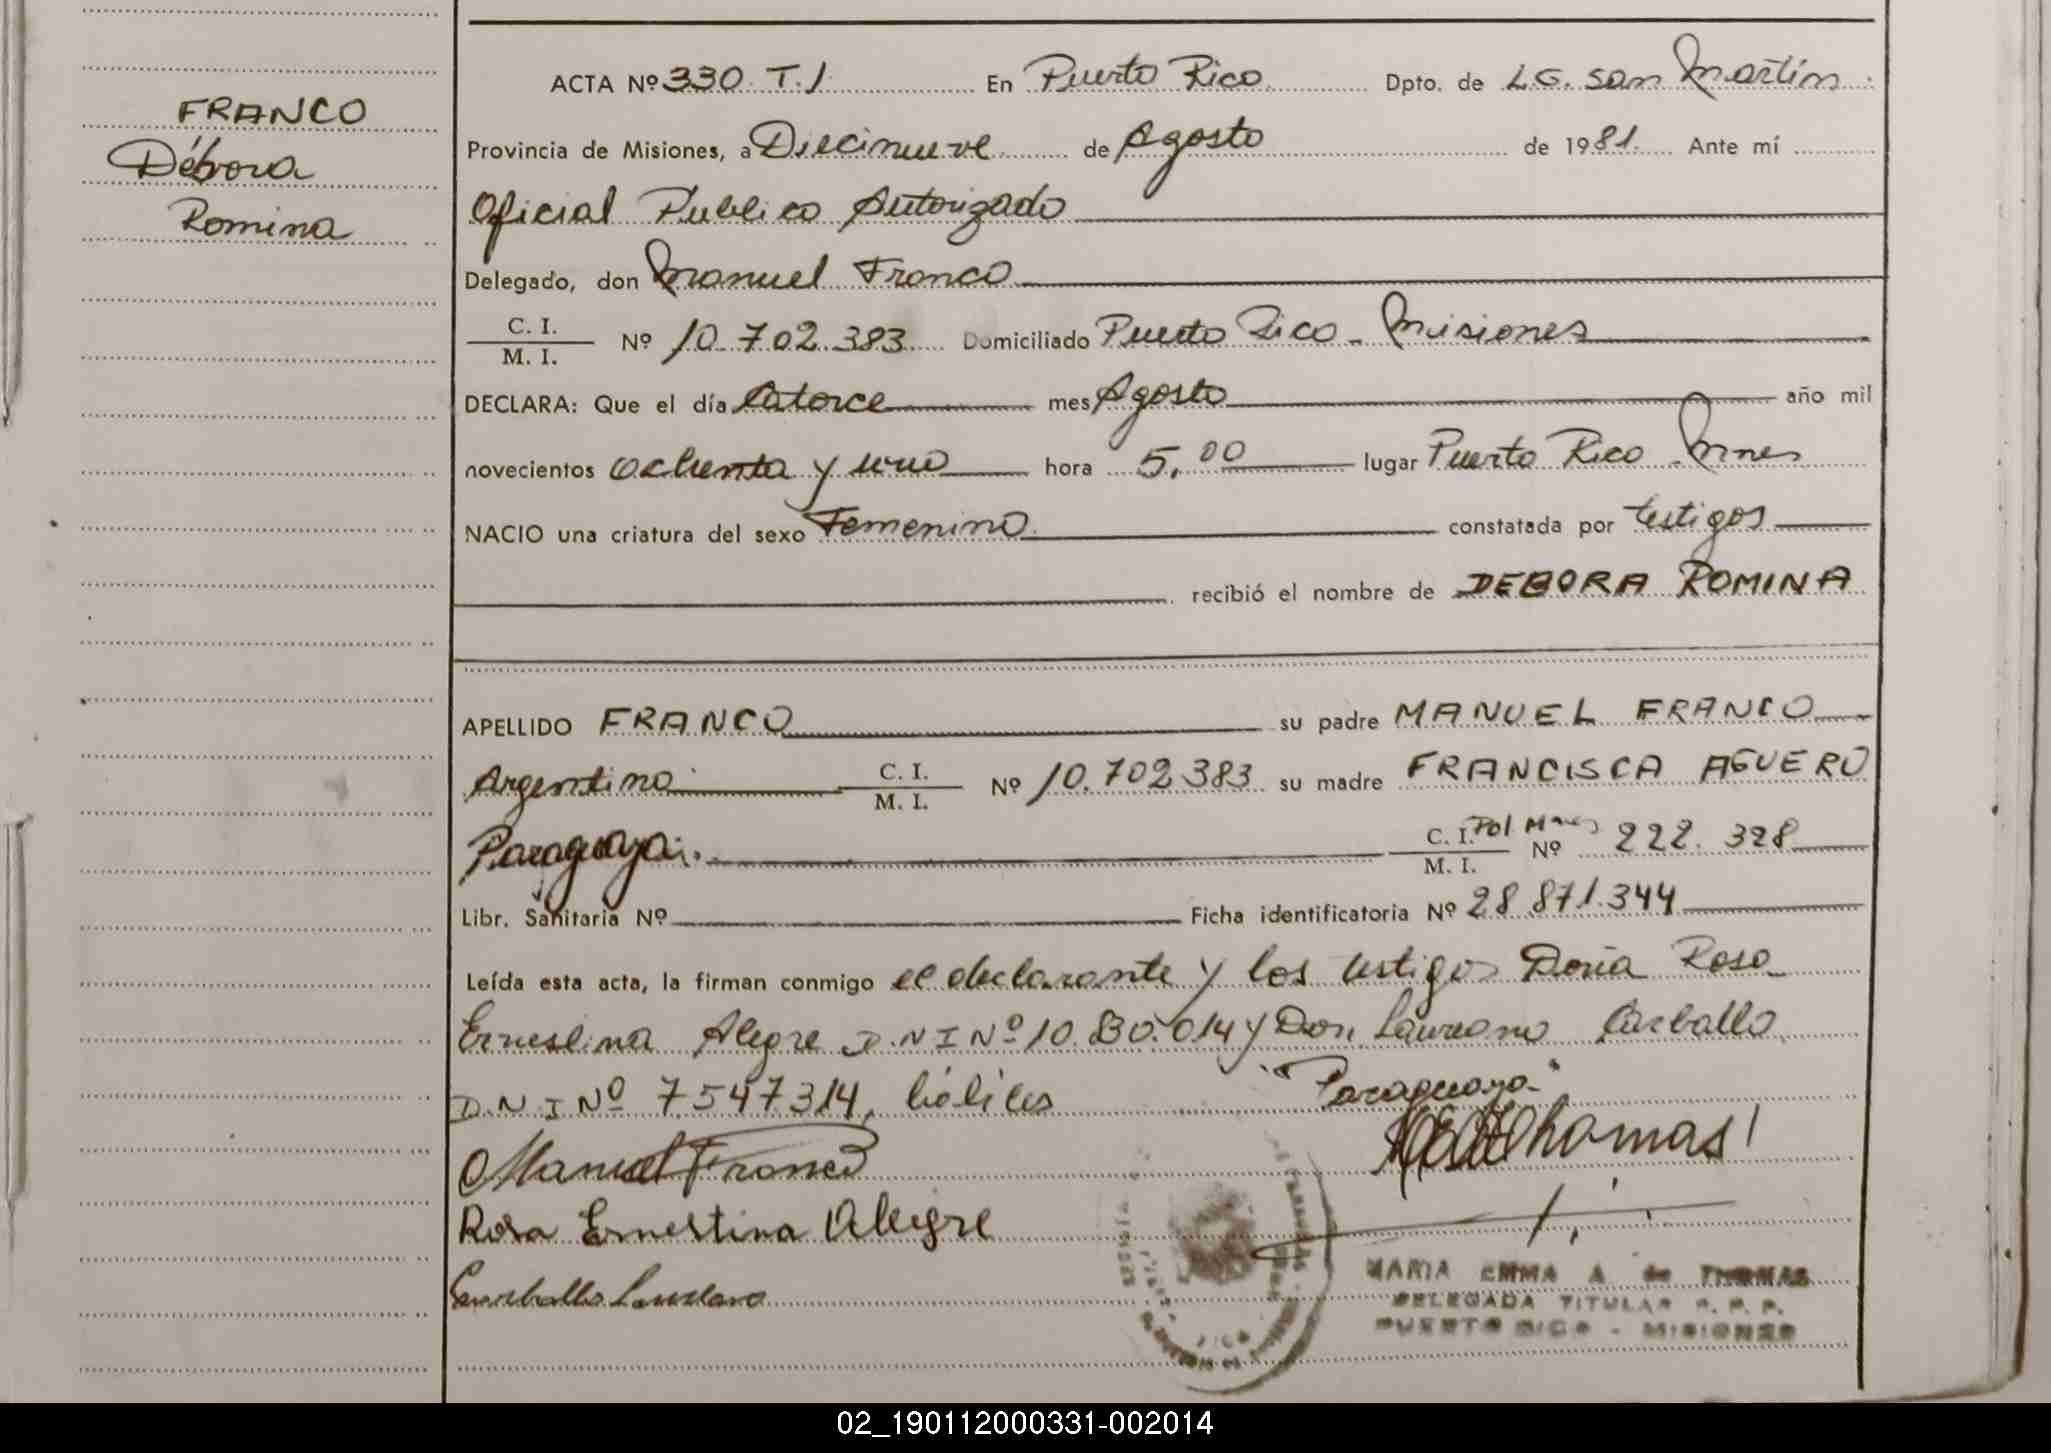 FRANCO
Débora
Romina
ACTA Nº 330 T.1 En Puerto Rico Dpto. de L.G. San Martín
Provincia de Misiones, a Diecinueve de Agosto de 1981. Ante mí
Oficial Publico Autorizado
Delegado, don Manuel Franco
C. I.
M. I. Nº 10.702.383 Domiciliado Puerto Rico - Misiones
DECLARA: Que el día Catorce mes Agosto año mil
novecientos ochenta y uno hora 5,00 lugar Puerto Rico Mnes
NACIO una criatura del sexo Femenino constatada por testigos
recibió el nombre de DEBORA ROMINA
APELLIDO FRANCO su padre MANUEL FRANCO
Argentino C. I. M. I. Nº 10.702.383 su madre FRANCISCA AGUERO
Paraguaya. C. I. Pol Mnes M. I. Nº 222.328
Libr. Sanitaria Nº Ficha identificatoria Nº 28.871.344
Leída esta acta, la firman conmigo el declarante y los testigos Doña Rosa
Ernestina Alegre D.N.I Nº 10. 014 y Don Laureano Carballo
D.N.I Nº 7.547.314, hábiles "Paraguaya"
Manuel Franco Thomas
Rosa Ernestina Alegre
Carballo Laureano
MARIA EMMA A de THOMAS
DELEGADA TITULAR R. P. P.
PUERTO RICO - MISIONES
02_190112000331-002014